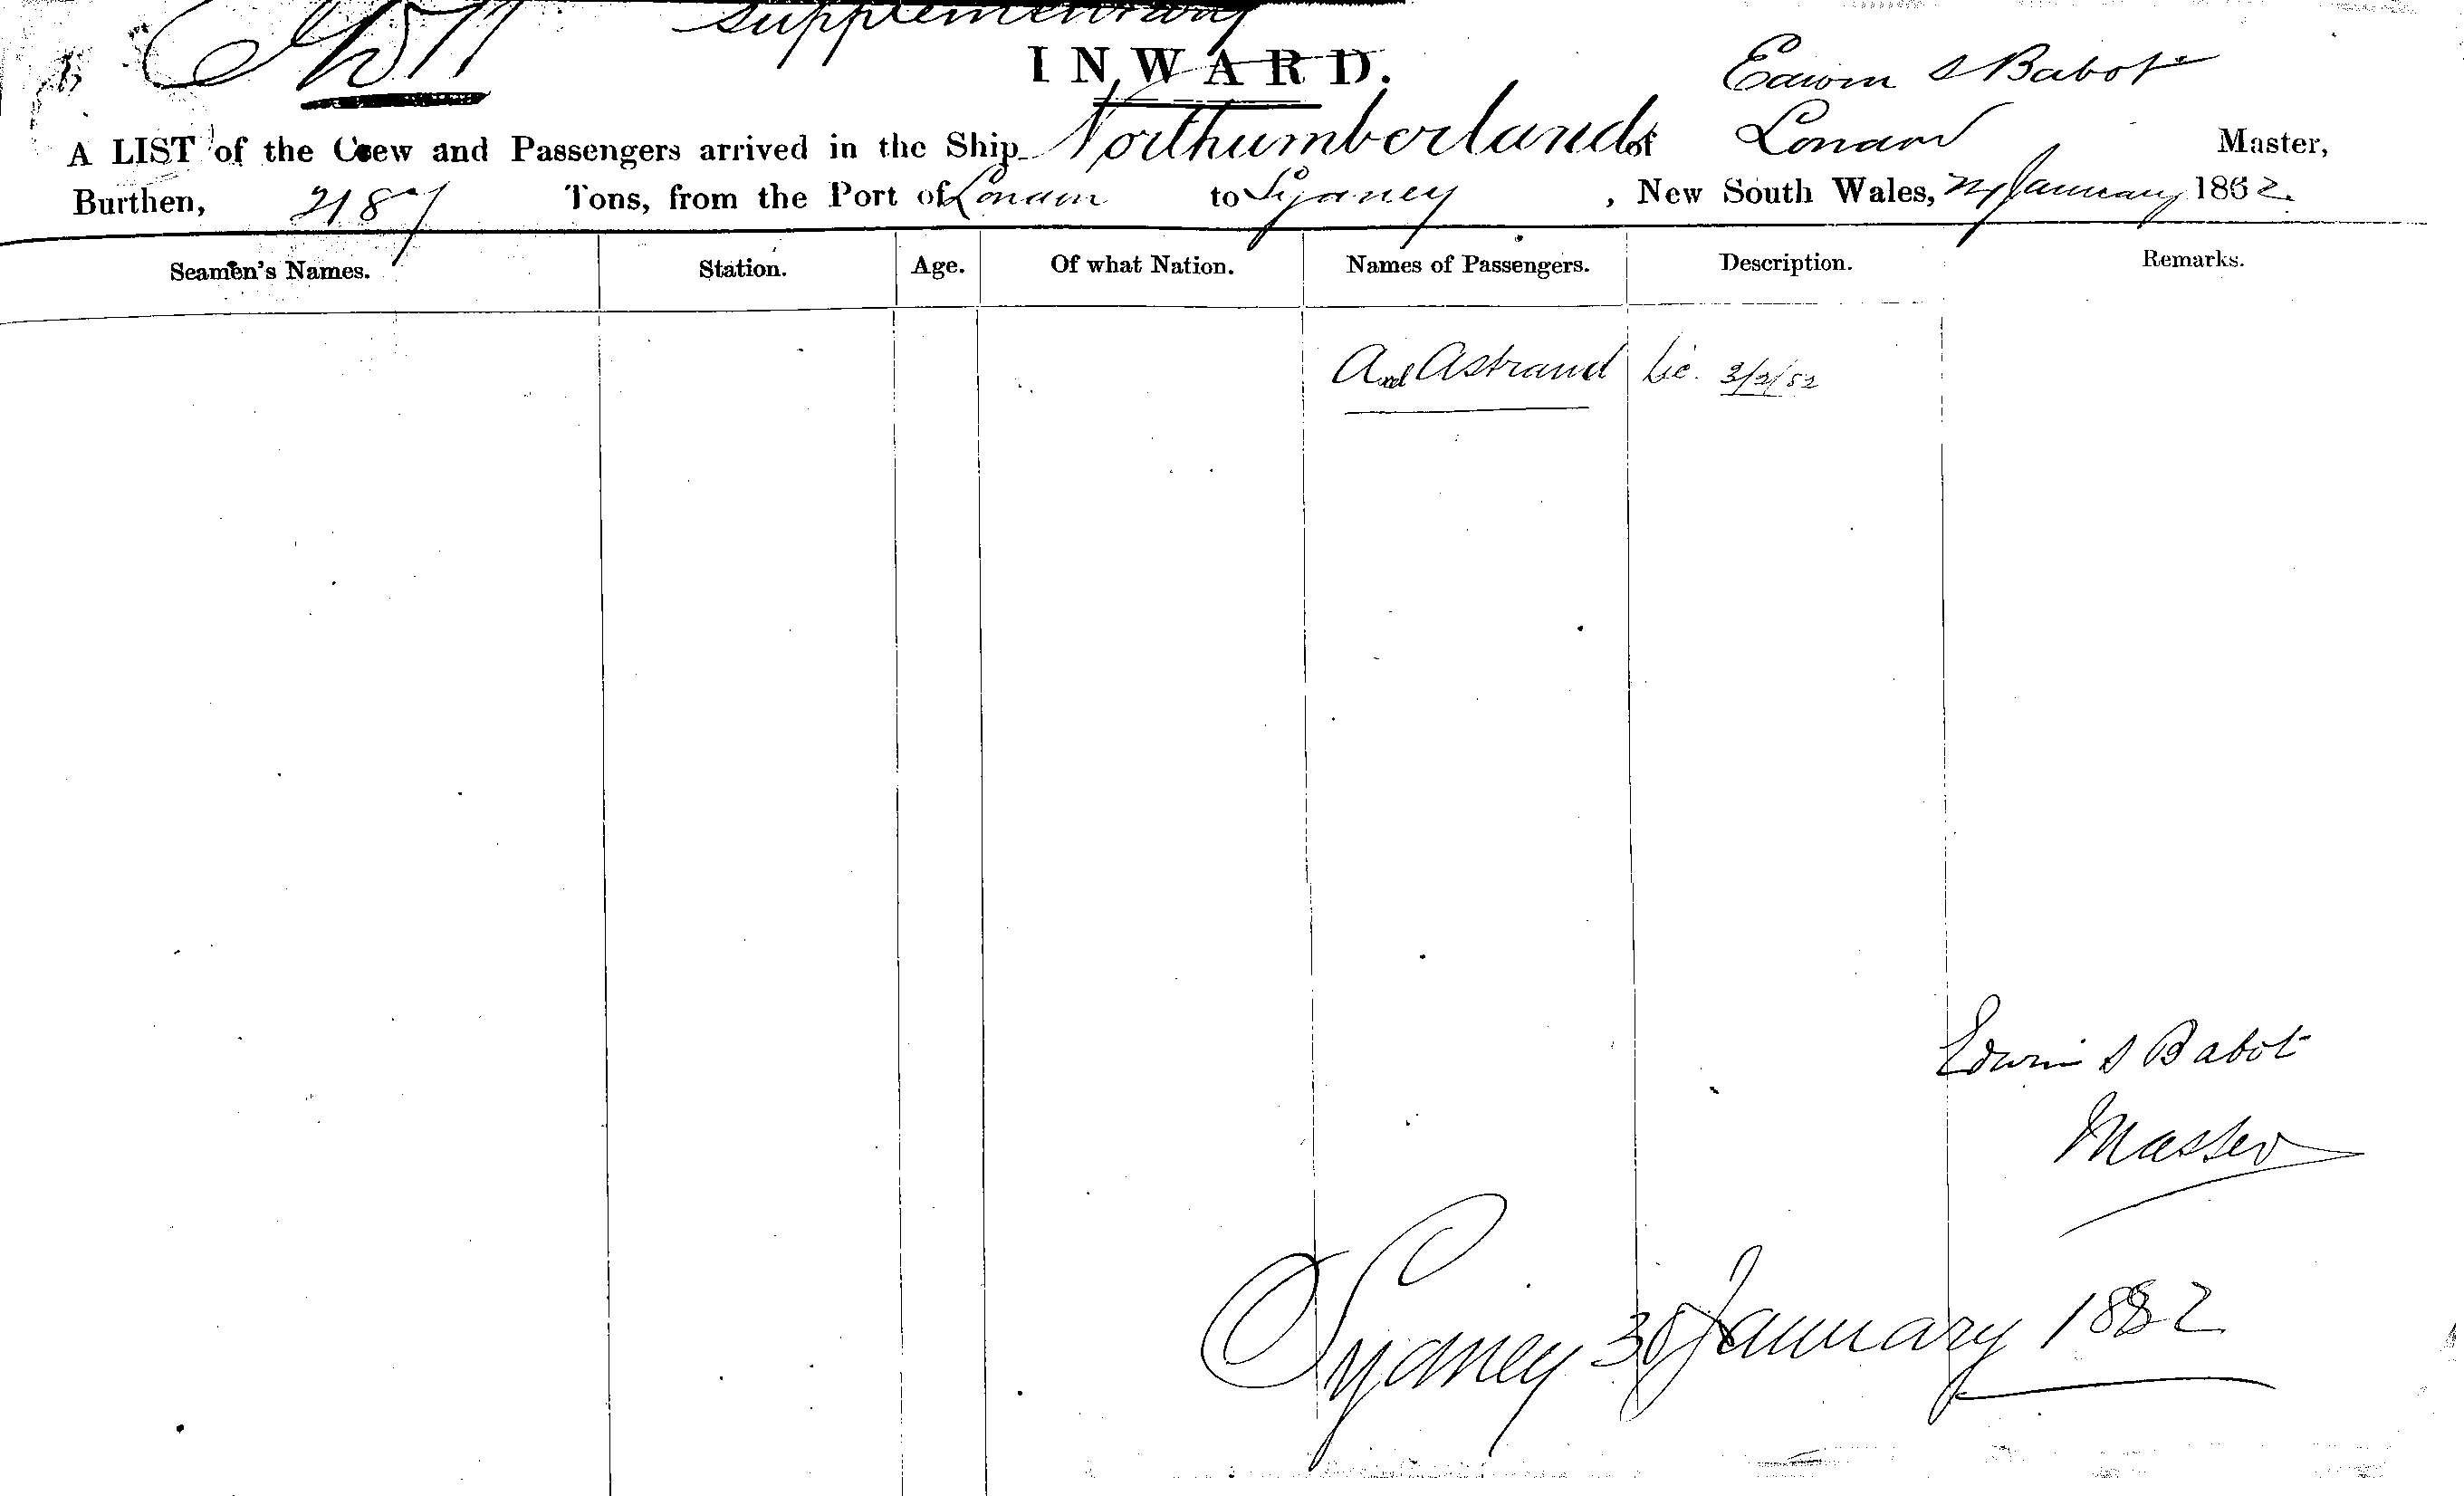 Supplementary
INWARD.
Edwin S Babot
A LIST of the Crew and Passengers arrived in the Ship Northumberland of London Master,
Burthen, 2187 Tons, from the Port of London to Sydney, New South Wales, January 1882
Seamen's Names. Station. Age. Of what Nation. Names of Passengers. Description. Remarks.
Axel Astrand Lic. 3/2/82
Edwin S Babot
Master
Sydney 30 January 1882